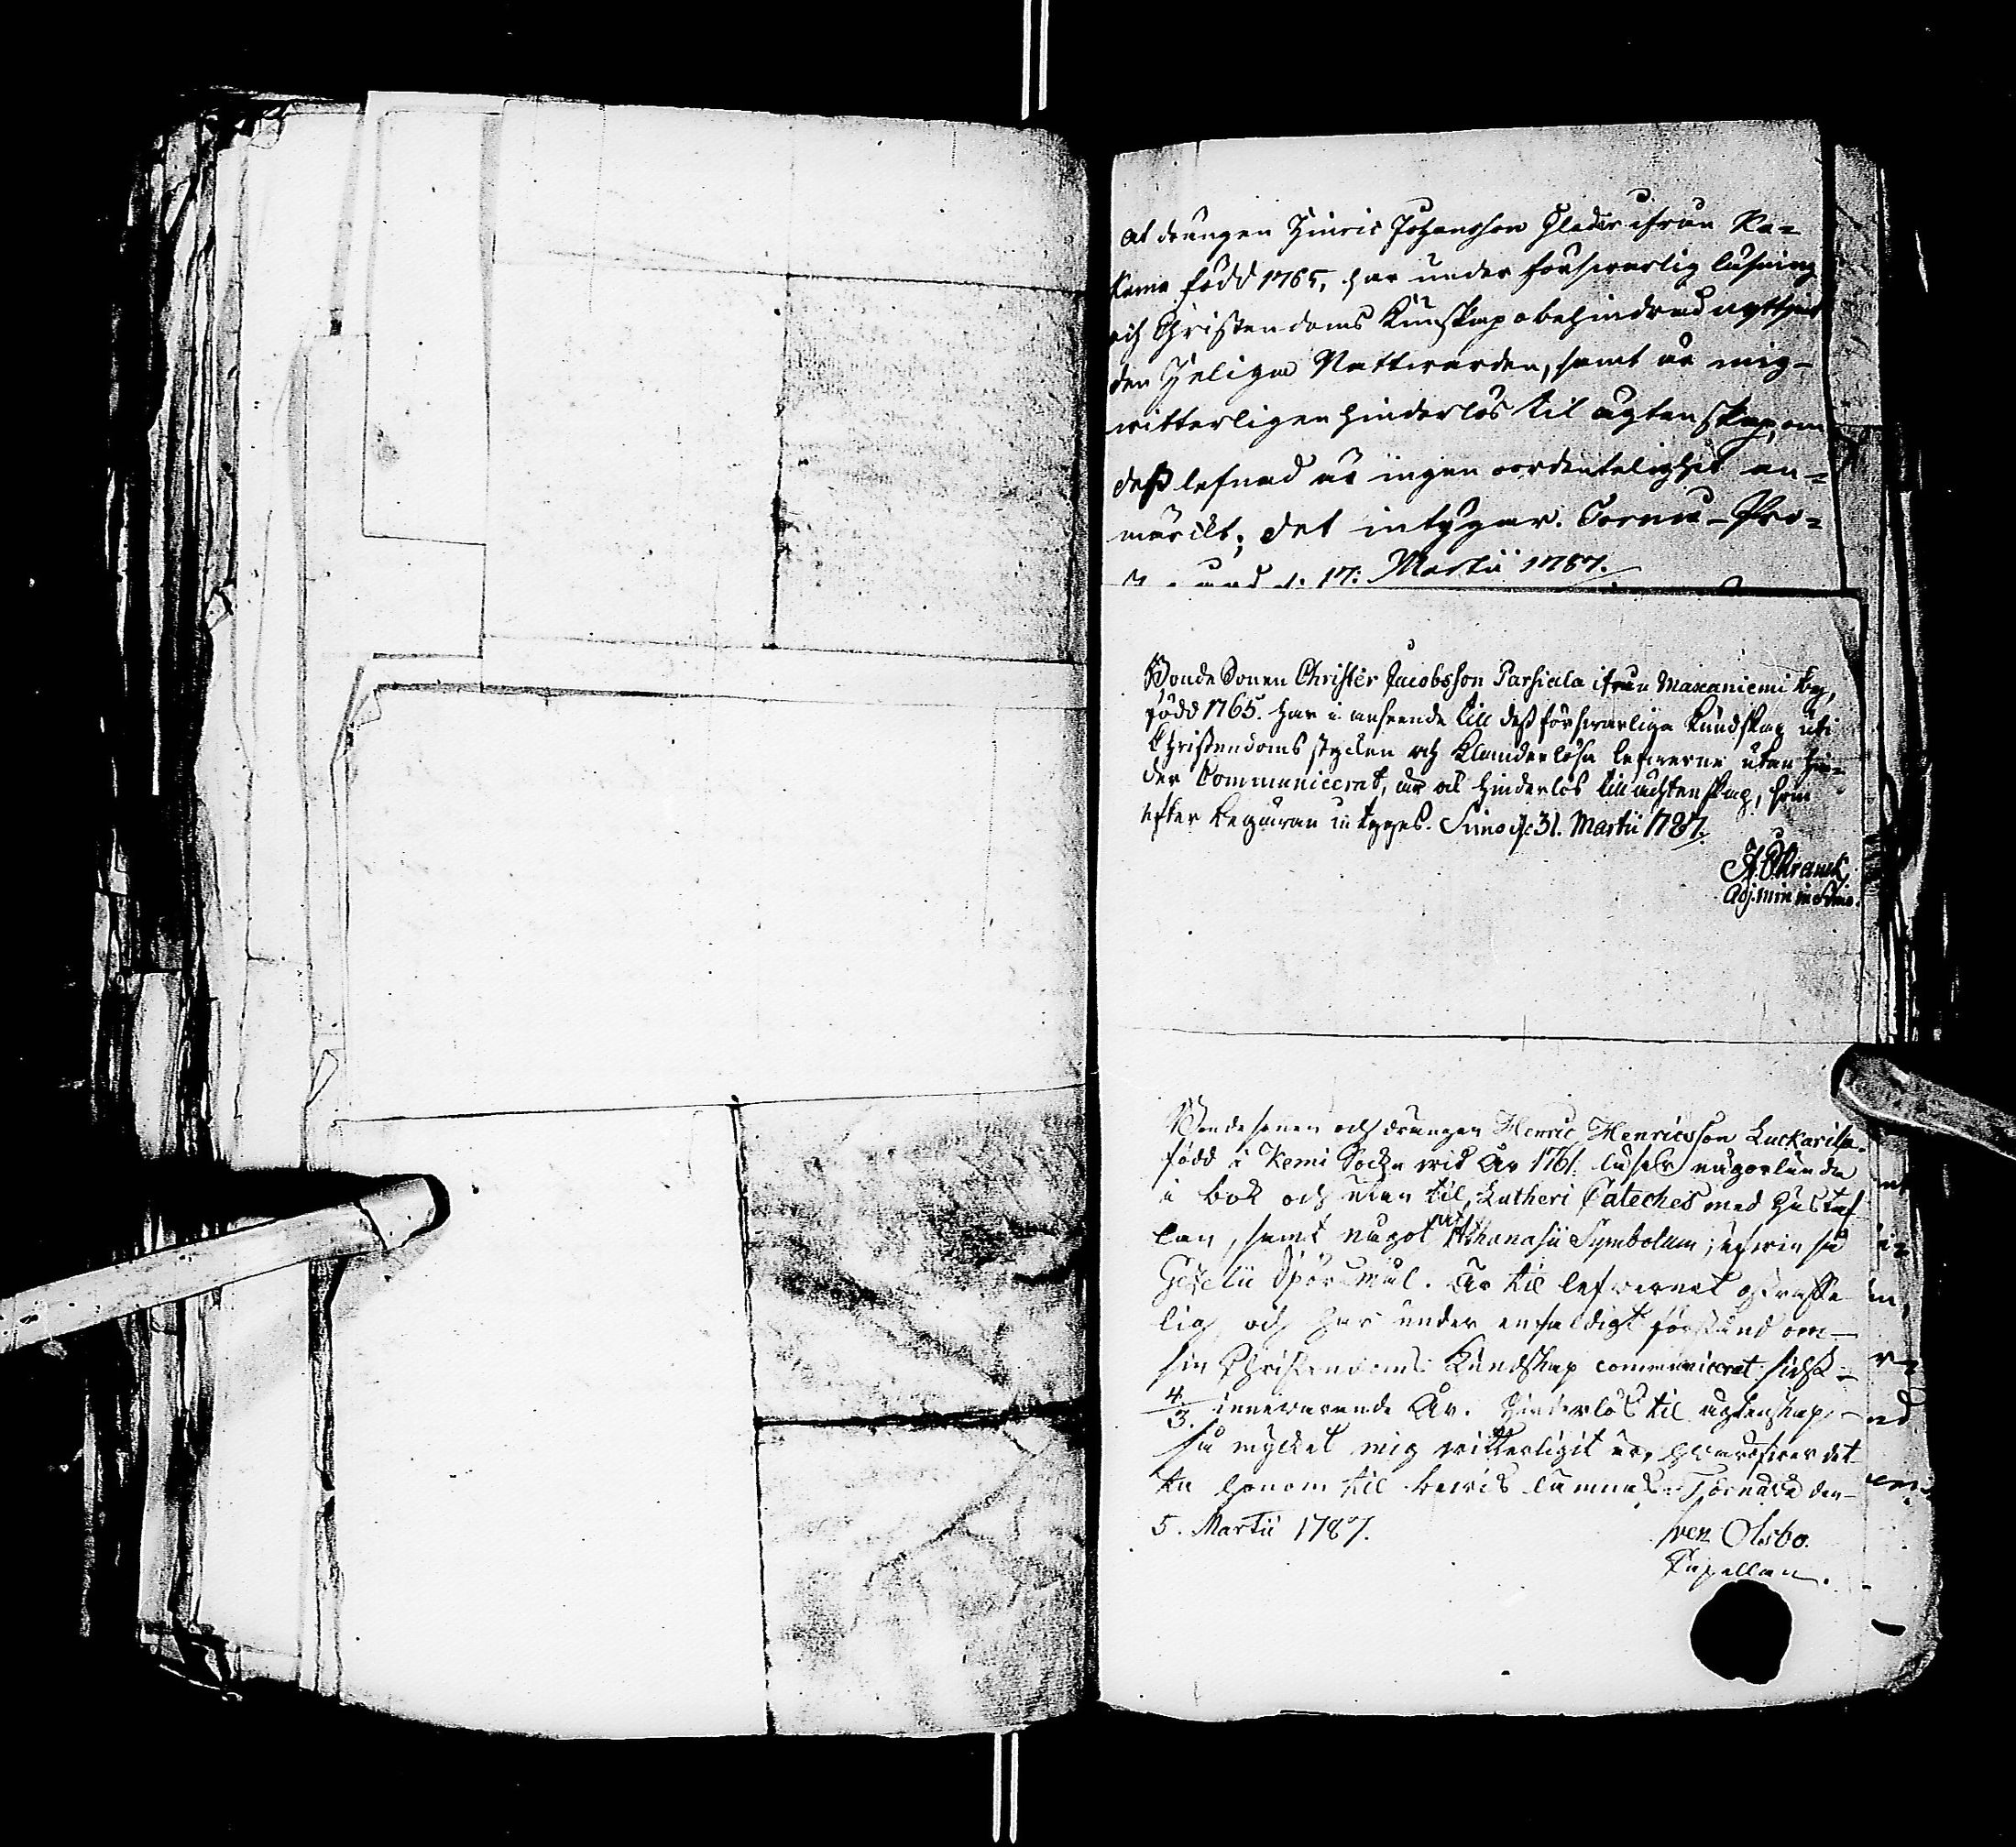 At drängen Hinric Johansson Glader ifrån Ka=
kama född 1765, har under försvarlig läsning
och Christendoms Kunskap obehindrad nyttjat
den Heliga Nattwarden, samt är mig
witterligen hinderlös til ägtenskap, om
dess lefnad är ingen oordentelighet an=
märckt; det intygar. Torneå-Pro=
d. 17: Martii 1787.
Bonde Sonen Christer Jacobsson Parsiala ifrån Maxaniemi by,
född 1765. har i anseende till dess försvarliga kundskap uti
Christendoms stycken och klanderlösa lefverne utan hin=
der Communicerat, är ock hinderlös till ächtenskap, som
efter begäran intyges. Simo d: 31. Martii 1787.
Adj. min in Simo.
Bonde sonen och drängen Henric Henricsson Luckarila
född i Kemi Sockn wid År 1761. läser någorlunda
i bok och utan til, Lutheri Cateches med Hustaf
lan, samt något ut Athanasii Symbolum; äfwen så
Gezelii Spörsmål. Är til lefvernet ostraffe
lig och har under enfaldigt förstånd om
sin Christendoms Kundskap communicerat sidst
4/3. innewarande År. Hinderlös til ägtenskap
så mycket mig witterligit är, hwarföre det
ta honom til bewis lämnas. Torneå den
5. Martii 1787.
Sven Olsbo.
Capellan.